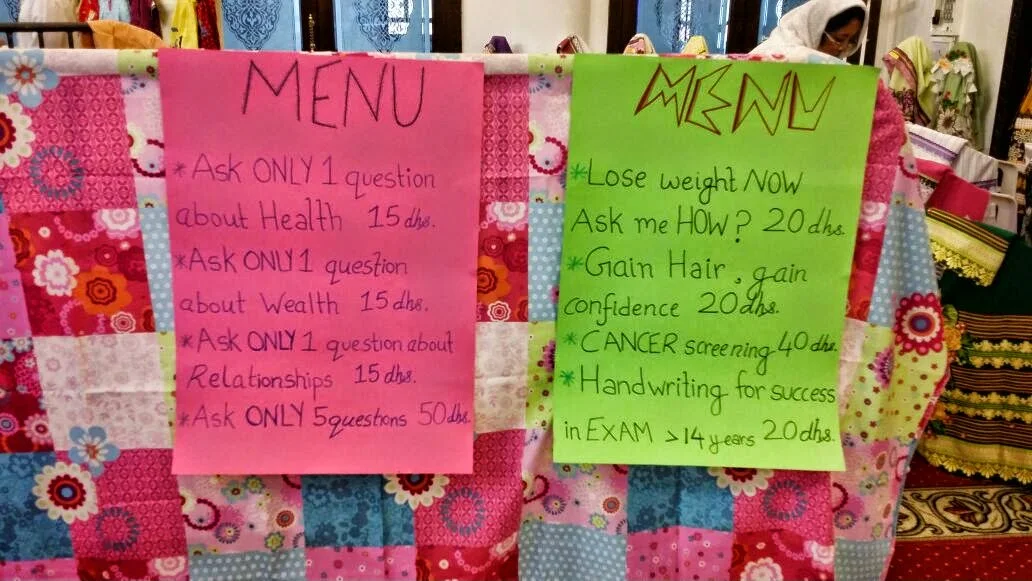 MENU
*Ask ONLY 1 question
about Health 15 dhs.
*Ask ONLY 1 question
about Wealth 15 dhs.
*Ask ONLY 1 question about
Relationships 15 dhs.
*Ask ONLY 5 questions 50 dhs.
MENU
*Lose weight NOW
Ask me HOW? 20 dhs.
*Gain Hair, gain
confidence 20 dhs.
*CANCER screening 40 dhs.
*Handwriting for success
in EXAM >14 years 20 dhs.